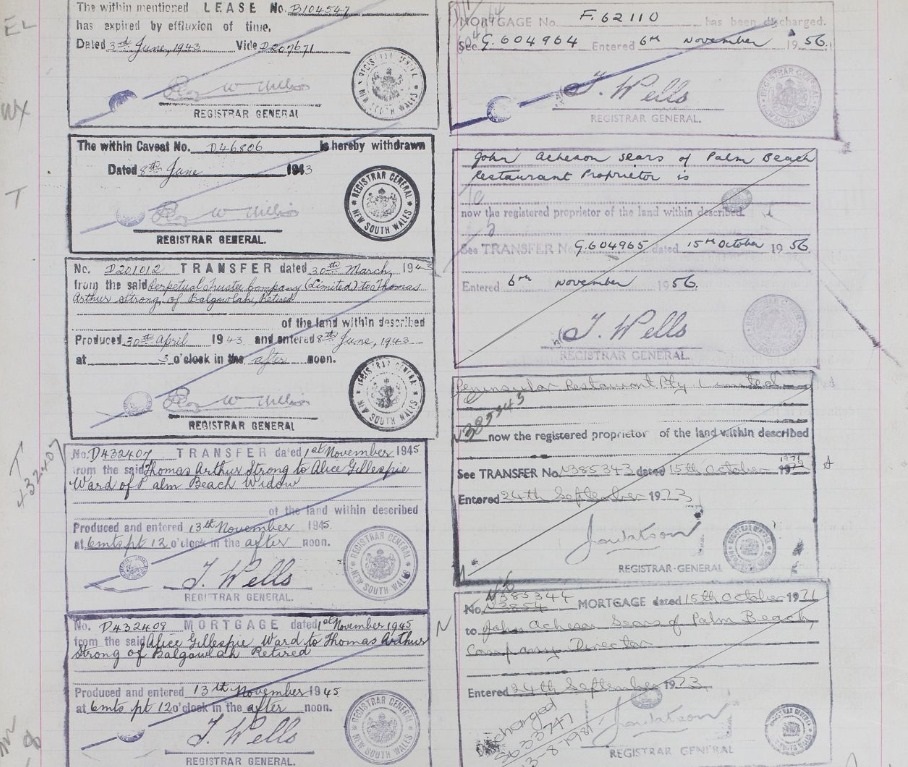 EL
WX
T
T
432407
The within mentioned LEASE No. B104547
has expired by effluxion of time.
Dated 3rd June, 1943 Vide D207671
REGISTRAR GENERAL
The within Caveat No. D46806 is hereby withdrawn
Dated 8th June 1943
REGISTRAR GENERAL.
REGISTRAR GENERAL
NEW SOUTH WALES
No. D201012 TRANSFER dated 30th March, 194
from the said Perpetual Trustee Company (Limited) to Thomas
Arthur Strong, of Balgowlah, Retired
of the land within described
Produced 30th April 1943 and entered 8th June, 1943
at 3 o'clock in the after noon.
REGISTRAR GENERAL
No. D432407 TRANSFER dated 1st November 1945
from the said Thomas Arthur Strong to Alice Gillespie
Ward of Palm Beach Widow
of the land within described
Produced and entered 13th November 1945
at 6mts pt 12 o'clock in the after noon.
T. Wells
REGISTRAR GENERAL
No. D432409 MORTGAGE dated 1st November 1945
from the said Alice Gillespie Ward to Thomas Arthur
Strong of Balgowlah Retired
Produced and entered 13th November 1945
at 6mts pt 12 o'clock in the after noon.
T. Wells
REGISTRAR GENERAL
MORTGAGE No. F.62110 has been discharged.
See G.604964 Entered 6th November 1956.
T. Wells
REGISTRAR GENERAL.
John Acheson Sears of Palm Beach
Restaurant Proprietor is
now the registered proprietor of the land within described.
See TRANSFER No. G.604965 dated 15th October 1956
Entered 6th November 1956.
T. Wells
REGISTRAR GENERAL.
Peninsular Restaurant Pty Limited
N385343
now the registered proprietor of the land within described
See TRANSFER No. N385343 dated 15th October 1971
Entered 24th September 1973
REGISTRAR-GENERAL
No. N385344 MORTGAGE dated 15th October 1971
to John Acheson Sears of Palm Beach,
Company Director
Entered 24th September 1973
Discharged
S633747
3-8-1981
REGISTRAR GENERAL